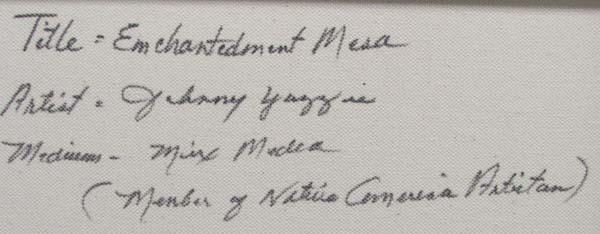 Title = Emchantedment Mesa
Artist = Johnny Yazzie
Medium - Mix Media
(Member of Native America Artistan)